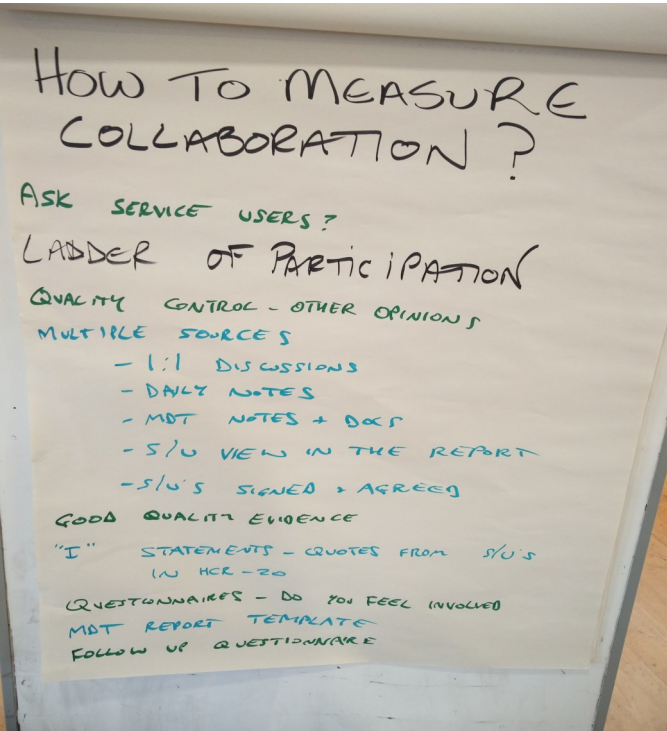 HOW TO MEASURE
COLLABORATION?
ASK SERVICE USERS?
LADDER OF PARTICIPATION
QUALITY CONTROL - OTHER OPINIONS
MULTIPLE SOURCES
- 1:1 DISCUSSIONS
- DAILY NOTES
- MDT NOTES + DOCS
- S/U VIEW IN THE REPORT
- S/U'S SIGNED + AGREED
GOOD QUALITY EVIDENCE
"I" STATEMENTS - QUOTES FROM S/U'S
IN HCR-20
QUESTONNAIRES - DO YOU FEEL INVOLVED
MDT REPORT TEMPLATE
FOLLOW UP QUESTIONNAIRE